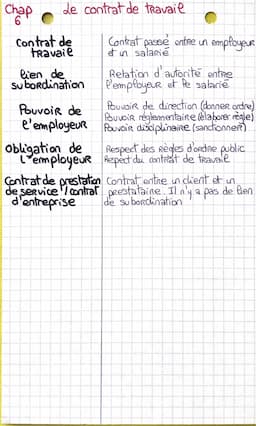 Chap 6 Le contrat de travail
Contrat de travail
Contrat passé entre un employeur
et un salarié
Lien de subordination
Relation d'autorité entre
l'employeur et le salarié
Pouvoir de l'employeur
Pouvoir de direction (donner ordre)
Pouvoir réglementaire (élaborer règle)
Pouvoir disciplinaire (sanctionner)
Obligation de L'employeur
Respect des Règles d'ordre public
Respect du contrat de travail
Contrat de prestation
de service / contrat
d'entreprise
Contrat entre un client et un
prestataire. Il n'y a pas de lien
de subordination